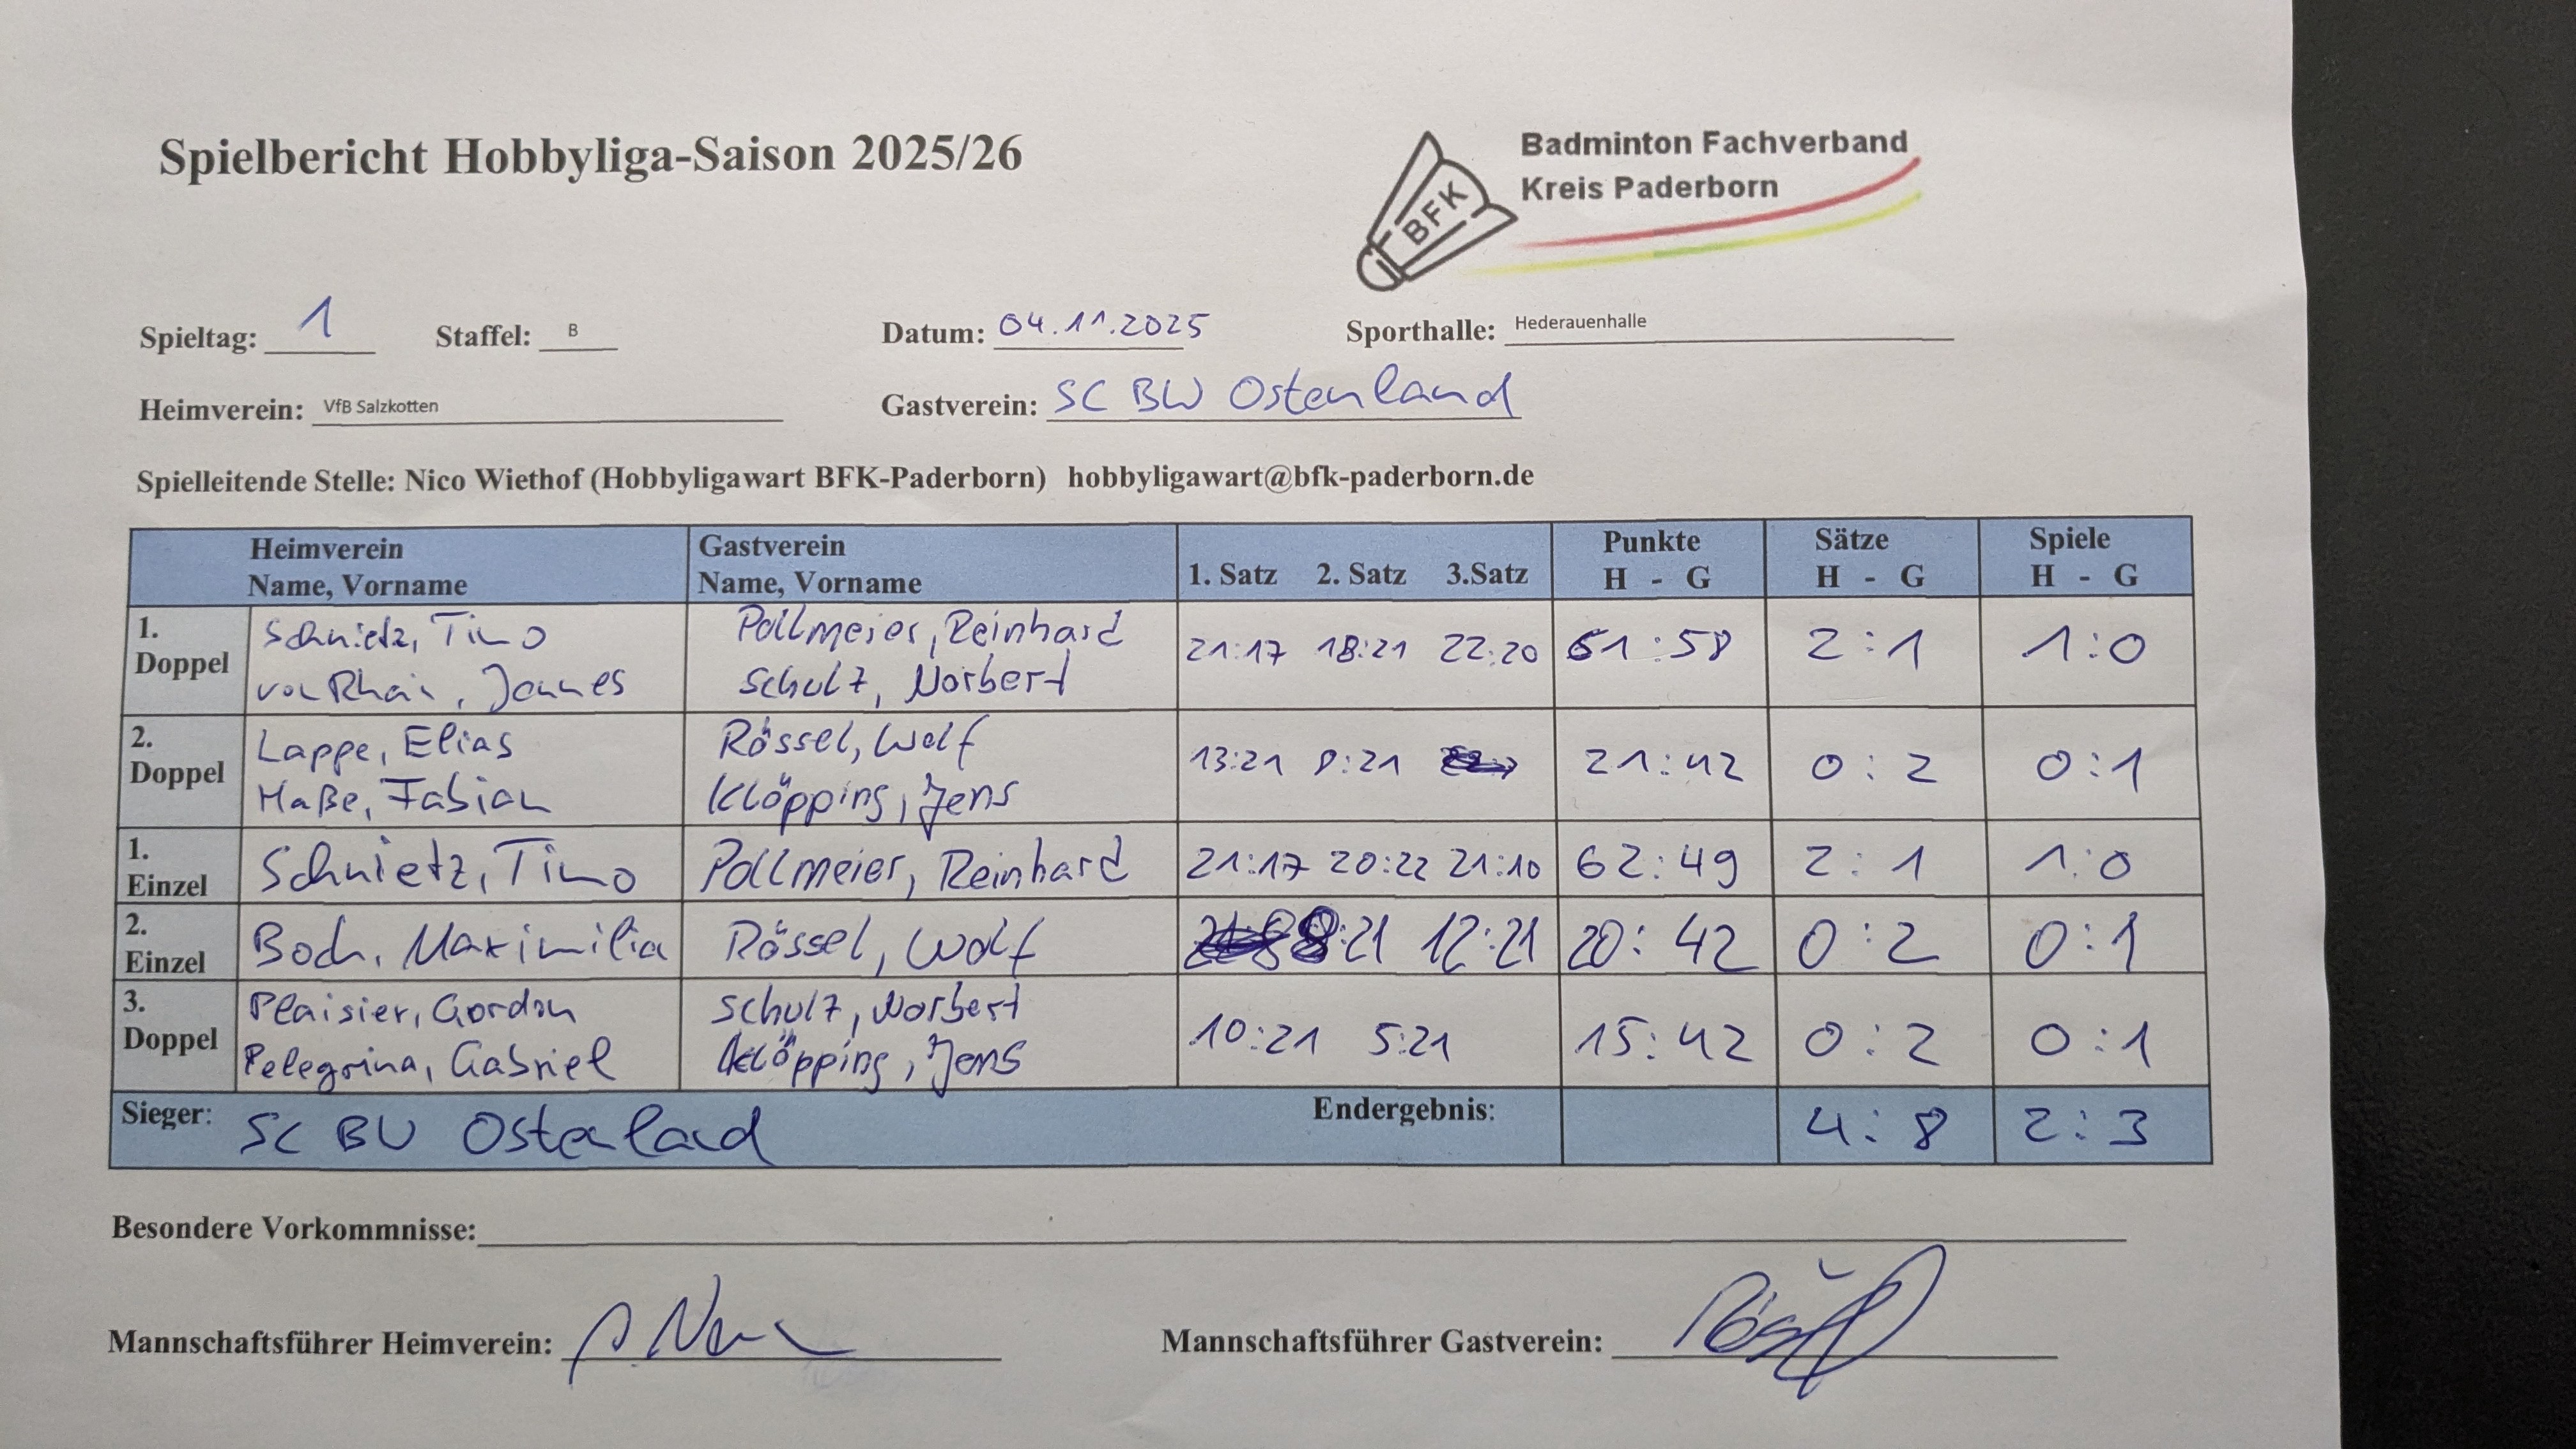 Spielbericht Hobbyliga-Saison 2025/26
BFK
Badminton Fachverband
Kreis Paderborn
Spieltag: 1 Staffel: B Datum: 04.11.2025 Sporthalle: Hederauenhalle
Heimverein: VfB Salzkotten Gastverein: SC BW Ostenland
Spielleitende Stelle: Nico Wiethof (Hobbyligawart BFK-Paderborn) hobbyligawart@bfk-paderborn.de
Heimverein Gastverein Punkte Sätze Spiele
Name, Vorname Name, Vorname 1. Satz 2. Satz 3.Satz H - G H - G H - G
1. Doppel Schnietz, Timo Pollmeier, Reinhard 21:17 18:21 22:20 61:58 2:1 1:0
Jannes Schulz, Norbert
2. Doppel Lappe, Elias Rössel, Wolf 13:21 8:21 21:42 0:2 0:1
Haße, Fabian Klöpping, Jens
1. Einzel Schnietz, Timo Pollmeier, Reinhard 21:17 20:22 21:10 62:49 2:1 1:0
2. Einzel Maximilia Rössel, Wolf 8:21 12:21 20:42 0:2 0:1
3. Doppel Plaisier, Gordon Schulz, Norbert 10:21 5:21 15:42 0:2 0:1
Pelegrina, Gabriel Klöpping, Jens
Sieger: SC BW Ostenland Endergebnis: 4:8 2:3
Besondere Vorkommnisse:
Mannschaftsführer Heimverein: Mannschaftsführer Gastverein: